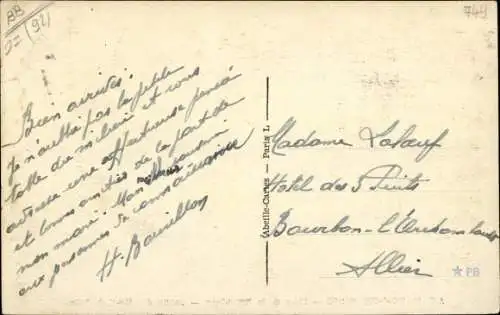 BB
749
Bien arrivés.
Je n'oublie pas la petite
table du milieu et vous
adresse une affectueuse pensée
et bonnes amitiés de la part de
mon mari. Mon souvenir
aux personnes de connaissance
H. Bouillon
Abeille-Cartes — Paris
Madame
Hotel des 3 Puits
Bourbon-l'Archambault
Allier
PB